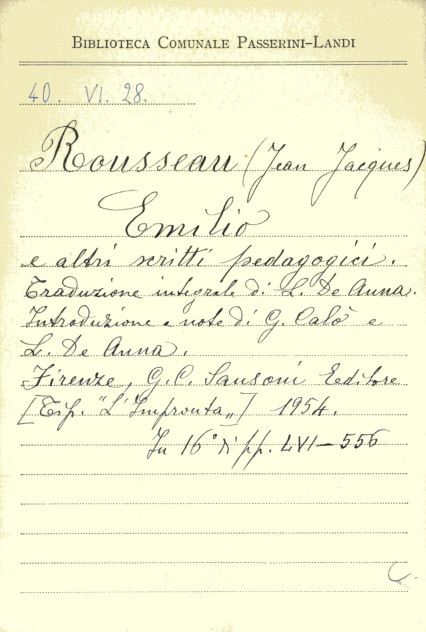 BIBLIOTECA COMUNALE PASSERINI-LANDI
40. VI. 28.
Rousseau (Jean Jacques)
Emilio
e altri scritti pedagogici.
Traduzione integrale di L. De Anna.
Introduzione e note di G. Calò e
L. De Anna.
Firenze, G. C. Sansoni Editore
[Tip. "L'Impronta„] 1954.
In 16° di pp. LVI-556